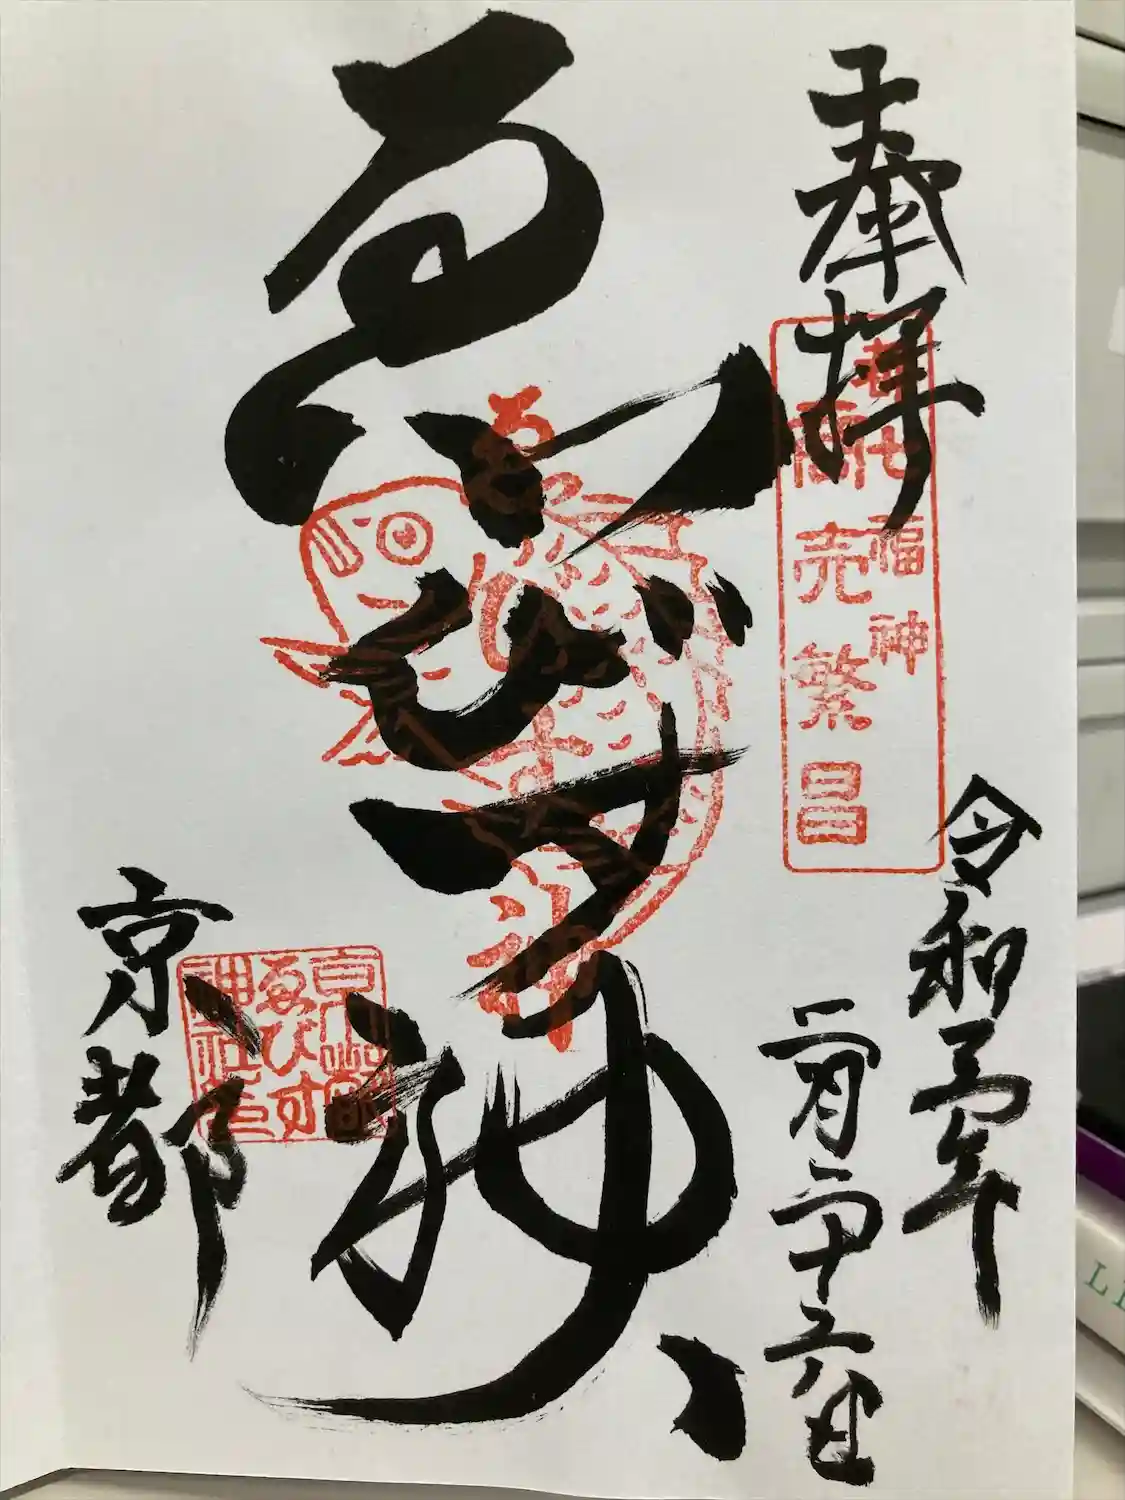 奉拝
都七福神
商売繁昌
令和三年
二月二十六日
ゑびす神
ゑびす神
京都
ゑびす
神社